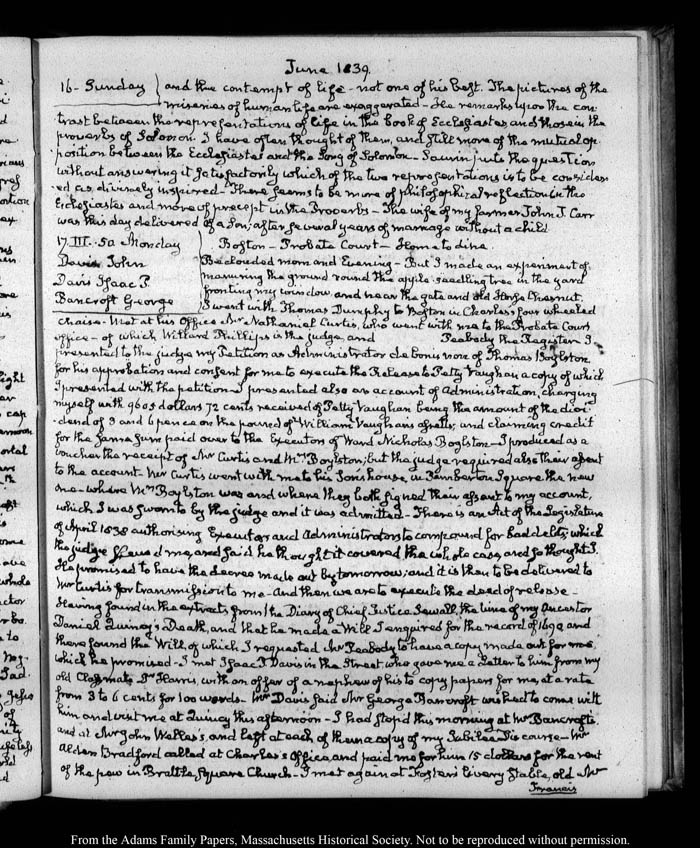 June 1839.
16. Sunday and the contempt of life - not one of his best. The pictures of the
miseries of human life are exaggerated - He remarks upon the con-
trast between the representations of life in the book of Ecclesiastes and those in the
proverbs of Solomon. I have often thought of them, and still more of the mutual op-
position between the Ecclesiastes and the Song of Solomon - Saurin puts the question
without answering it satisfactorily which of the two representations is to be consider-
ed as divinely inspired - There seems to be more of philosophical reflection in the
Ecclesiastes and more of precept in the Proverbs - The wife of my farmer John J. Carr
was this day delivered of a Son; after several years of marriage without a child
17. III. 50 Monday Boston - Probate Court - Home to dine.
Davis John Beclouded morn and Evening - But I made an experiment of
Davis Isaac P. manuring the ground round the apple-seedling tree in the yard
Bancroft George fronting my window, and near the gate and old Horse Chesnut.
I went with Thomas Dunphy to Boston in Charles's four wheeled
Chaise - Met at his Office Mr Nathaniel Curtis, who went with me to the Probate Court
office - of which Willard Phillips is the judge, and Peabody the Register. I
presented to the judge my Petition as Administrator de bonis non of Thomas Boylston
for his approbation and consent for me to execute the Release to Petty Vaughan a copy of which
I presented with the petition - I presented also an account of Administration, charging
myself with 9605 dollars 72 cents received of Petty Vaughan being the amount of the divi-
dend of 3 and 6 pence on the pound of William Vaughan's assets; and claiming credit
for the same sum paid over to the Executors of Ward Nicholas Boylston - I produced as a
voucher the receipt of Mr Curtis and Mrs Boylston; but the judge required also their assent
to the account. Mr Curtis went with me to his Son's house, in Pemberton Square the new
one - where Mrs Boylston was and where they both signed their assent to my account,
which I was sworn to by the judge and it was admitted - There is an Act of the Legislature
of April 1838 authorising Executors and Administrators to compound for bad debts, which
the judge shewed me, and said he thought it covered the whole case, and so thought I.
He promised to have the decree made out by tomorrow; and it is then to be delivered to
Mr Curtis for transmission to me - And then we are to execute the deed of release -
Having found in the extracts from the Diary of Chief Justice Sewall, the time of my Ancestor
Daniel Quincy's Death, and that he made a Will I enquired for the record of 1690 and
there found the Will, of which I requested Mr Peabody to have a copy made out for me,
which he promised - I met Isaac P. Davis in the Street who gave me a Letter to him from my
old Classmate Dr Harris, with an offer of a nephew of his to copy papers for me, at a rate
from 3 to 6 cents for 100 words - Mr Davis said Mr George Bancroft wished to come with
him and visit me at Quincy this afternoon - I had stop'd this morning at Mr Bancroft's
and at Mr John Welles's, and left at each of them a copy of my Jubilee Discourse - Mr
Alden Bradford called at Charles's Office, and paid me for him 15 dollars for the rent
of the pew in Brattle Square Church - I met again at Foster's livery Stable, old Mr
Francis
From the Adams Family Papers, Massachusetts Historical Society. Not to be reproduced without permission.